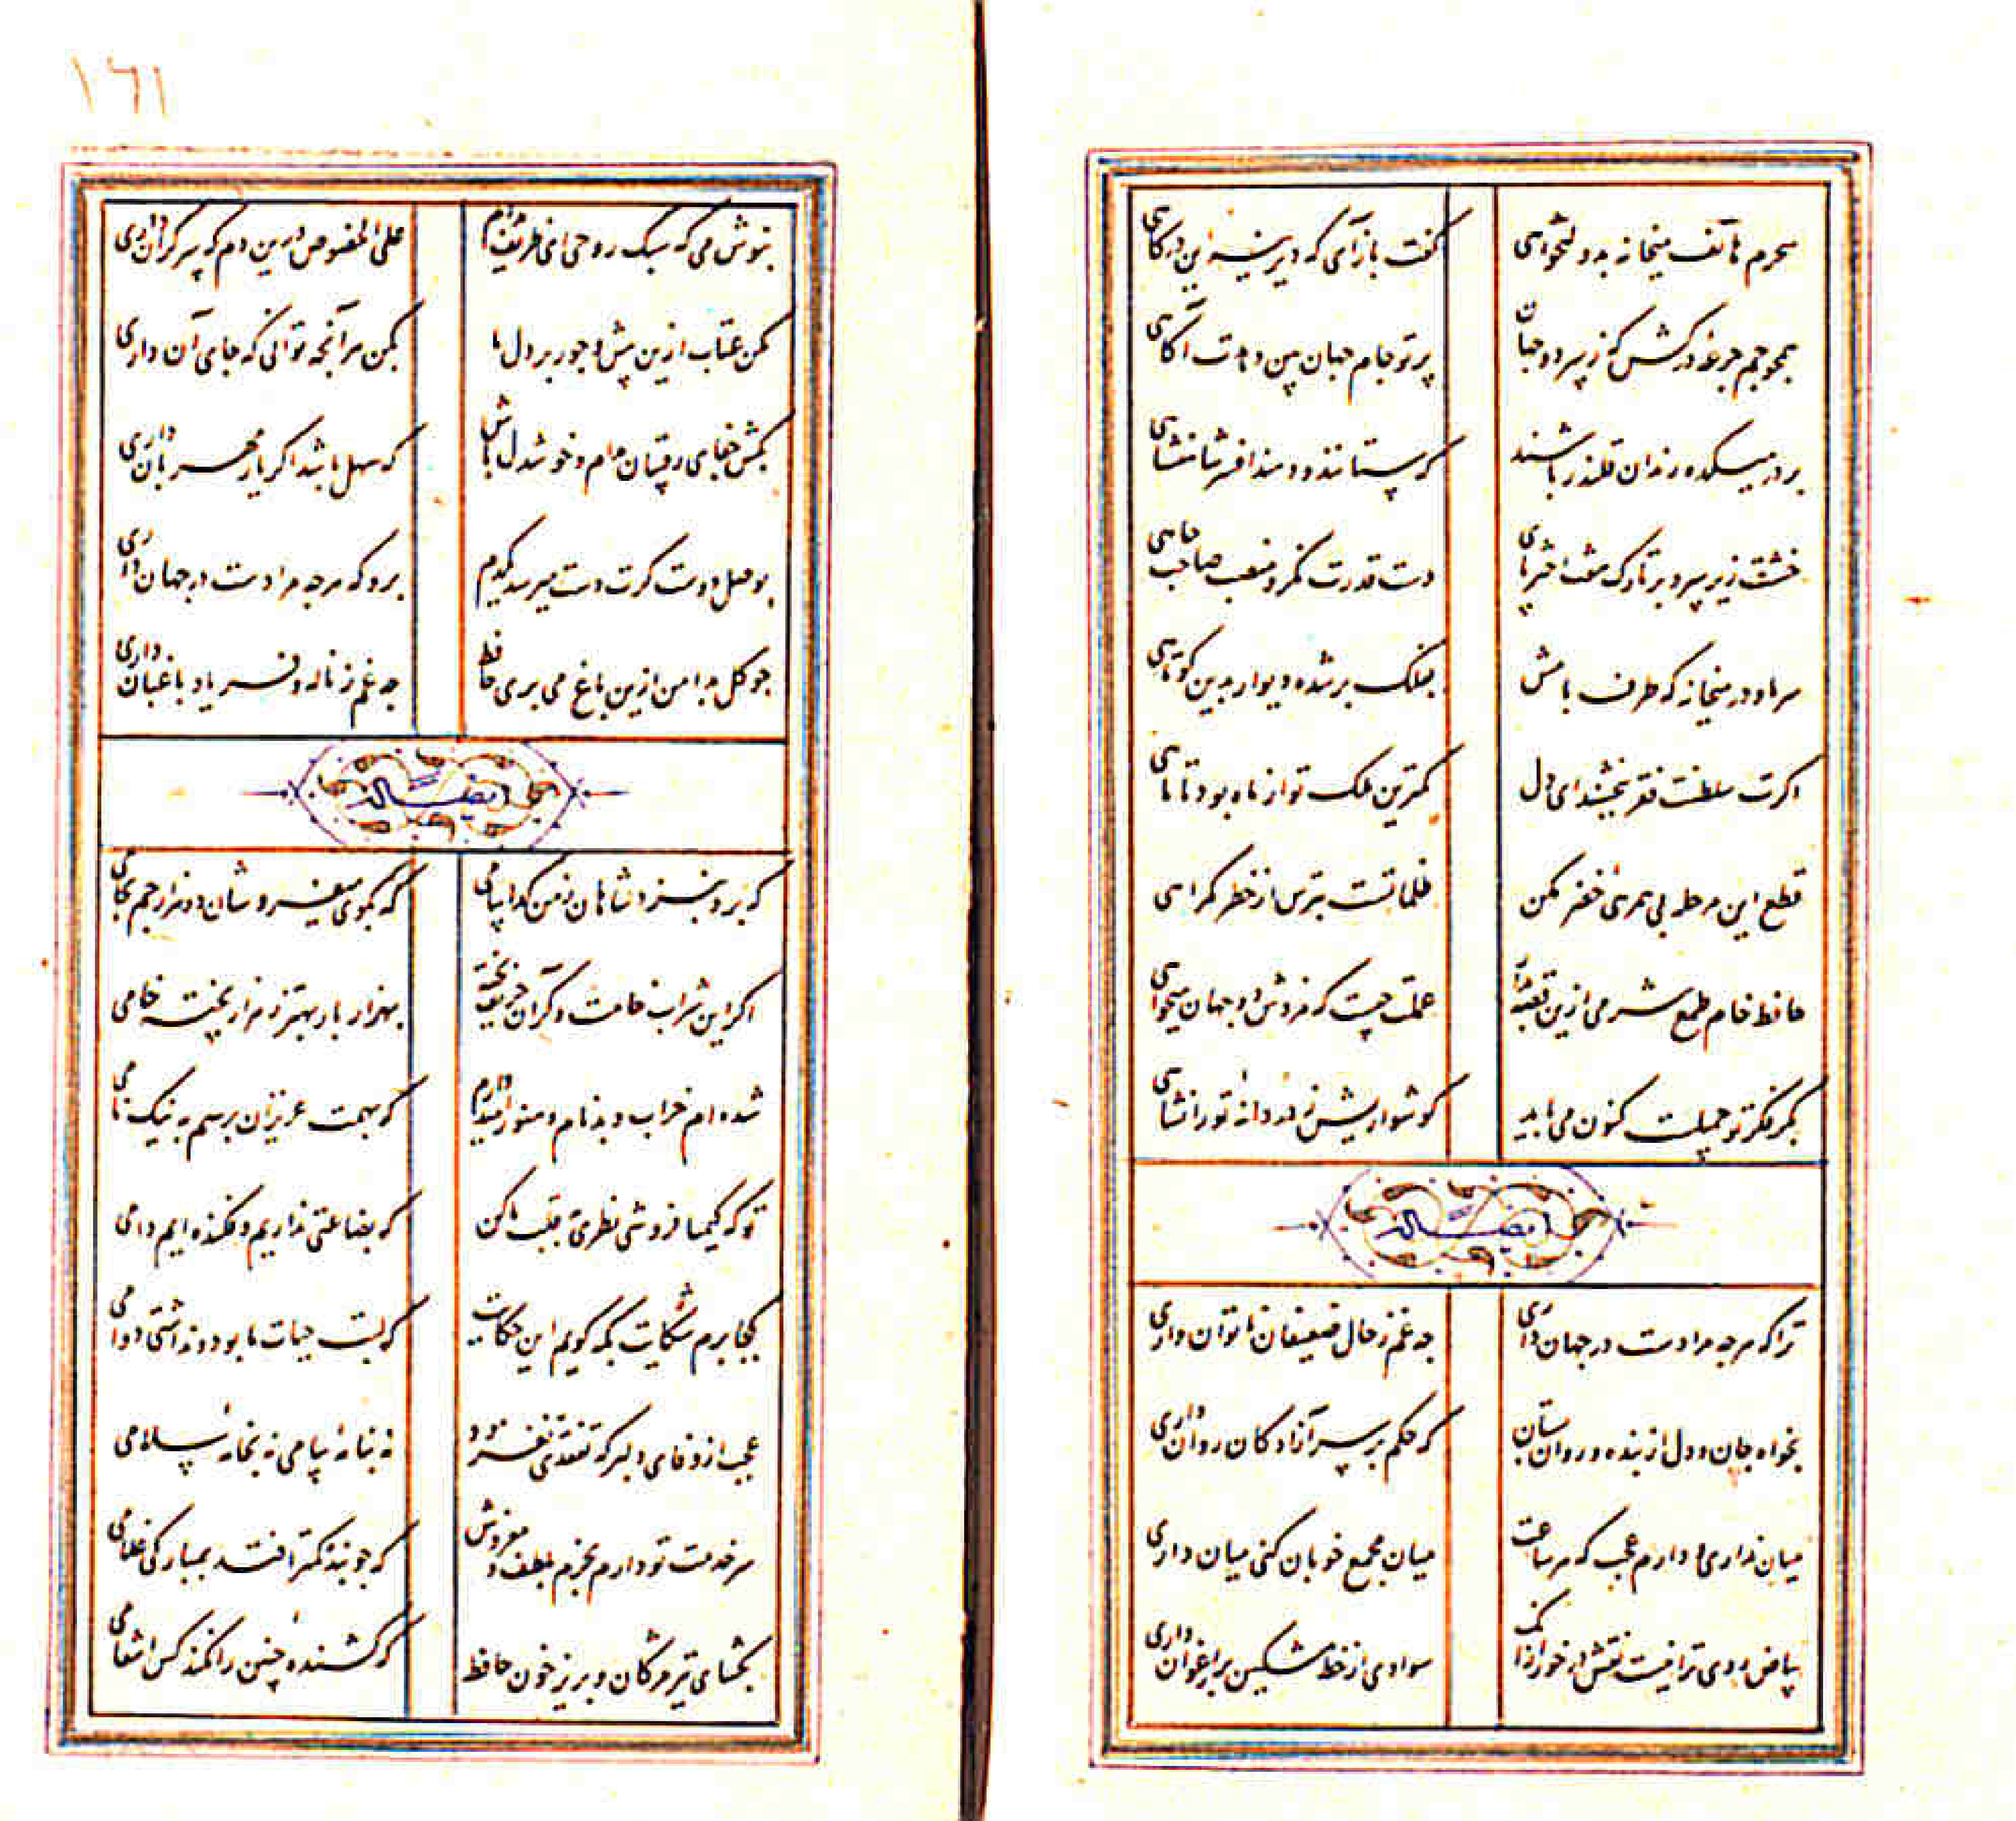 سحرم هاتف میخانه بدولتخواهی
گفت بازآی که دیرینهٔ این درگاهی
همچو جم جرعهٔ درکش که ز سر دو جهان
پرتو جام جهان بین دهدت آگاهی
بر در میکده رندان قلندر باشند
که ستانند و دهند افسر شاهنشاهی
خشت زیر سر و بر تارک هفت اختر پای
دست قدرت نگر و منصب صاحب جاهی
سر ما و در میخانه که طرف بامش
بفلک بر شده دیوار بدین کوتاهی
اگرت سلطنت فقر ببخشند ای دل
کمترین ملک تو از ماه بود تا ماهی
قطع این مرحله بی همرهی خضر مکن
ظلماتست بترس از خطر گمراهی
حافظ خام طمع شرمی ازین قصه بدار
عملت چیست که مزدش دو جهان میخواهی
گوشوار
ایضاً له
ترا که هرچه مرادست در جهان داری
چه غم ز حال ضعیفان ناتوان داری
بخواه جان و دل از بنده و روان بستان
که حکم بر سر آزادگان روان داری
میان نداری و دارم عجب که هر ساعت
میان مجمع خوبان کنی میان داری
بیاض روی ترا نیست نقش در خور از آنک
سوادی از خط مشکین بر ارغوان داری
١٦١
بنوش می که سبک روحی ای ظریف مدام
علی الخصوص درین دم که سر گران داری
مکن عتاب ازین بیش و جور بر دل ما
بکن هر آنچه توانی که جای آن داری
بکش جفای رقیبان مدام و خوشدل باش
که سهل باشد اگر یار مهربان داری
بوصل دوست گرت دست میرسد یکدم
برو که هرچه مرادست در جهان داری
چو گل بدامن ازین باغ می بری حافظ
چه غم ز ناله و فریاد باغبان داری
ایضاً له
که برد بنزد شاهان ز من گدا پیامی
که بکوی میفروشان دو هزار جم بجامی
اگر این شراب خامست و گر آن حریف پخته
بهزار بار بهتر ز هزار پخته خامی
شده ام خراب و بدنام و هنوز امیدوارم
که بهمت عزیزان برسم به نیک نامی
تو که کیمیا فروشی نظری بقلب ما کن
که بضاعتی نداریم و فکنده ایم دامی
بکجا برم شکایت بکه گویم این حکایت
که لبت حیات ما بود و نداشتی دوامی
عجب از وفای دلبر که تفقدی نفرمود
نه بنامهٔ پیامی نه بخامهٔ سلامی
سر خدمت تو دارم بخرم بلطف و مفروش
که چو بنده کمتر افتد بمبارکی غلامی
بگشای تیر مژگان و بریز خون حافظ
که کشندهٔ چنین را نکند کس انتقامی